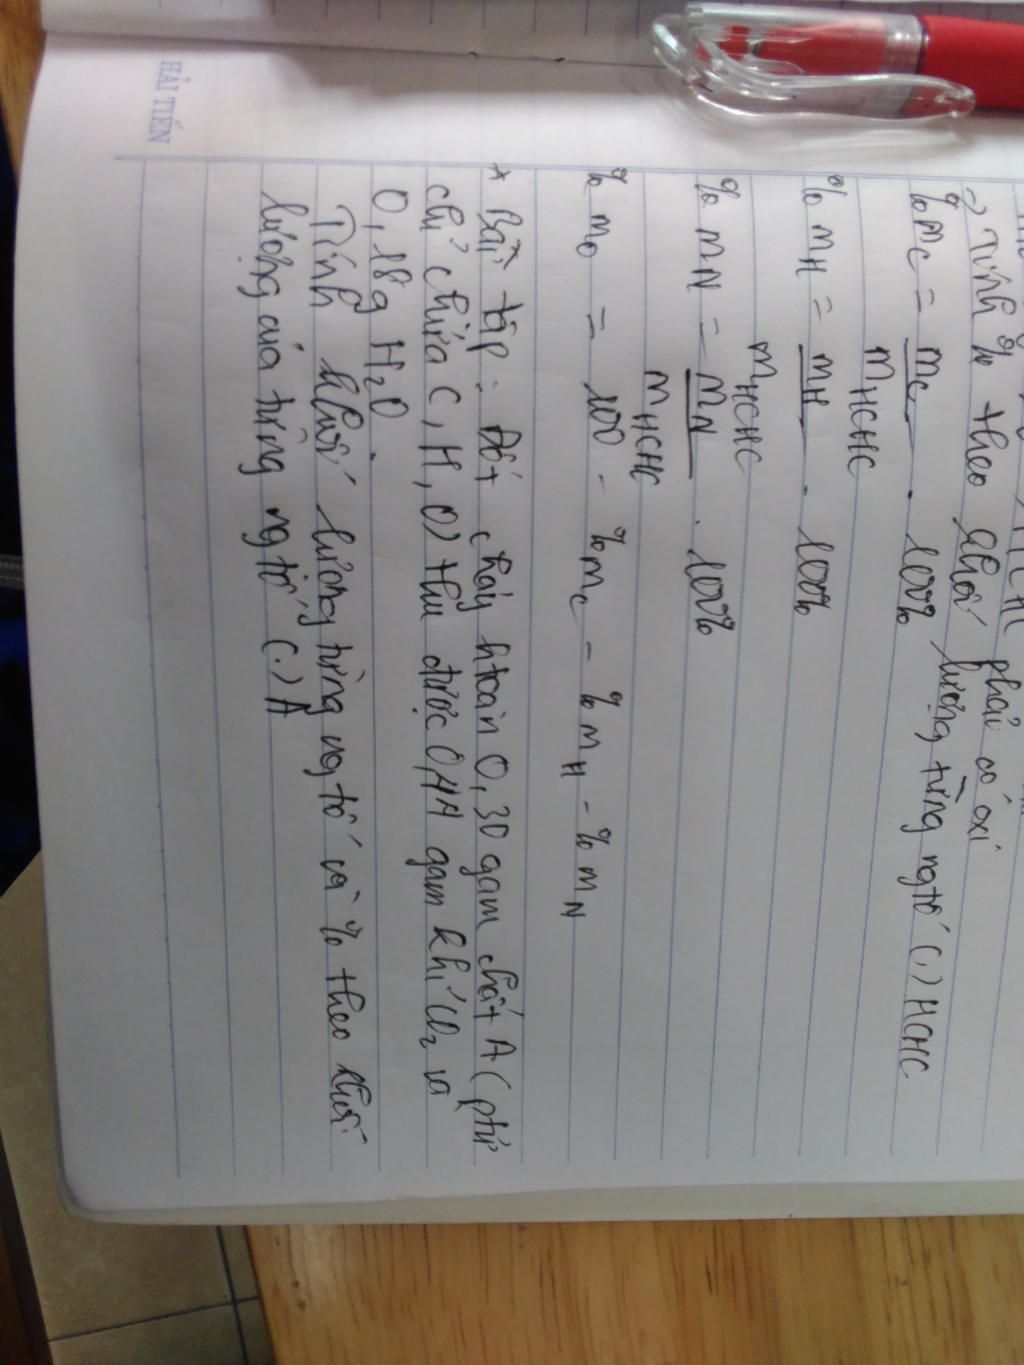 HẢI TIẾN
→ Tính % theo khối lượng từng ngtố (.) HCHC
phải có oxi
% mC = mC / mHCHC . 100%
% mH = mH / mHCHC . 100%
% mN = mN / mHCHC . 100%
% mO = 100 - % mC - % mH - % mN
* Bài tập : Đốt cháy htoàn 0,30 gam chất A (ptử
chỉ chứa C, H, O) thu được 0,44 gam khí CO2 và
0,18g H2O.
Tính khối lượng từng ngtố và % theo khối
lượng của từng ngtố (.) A